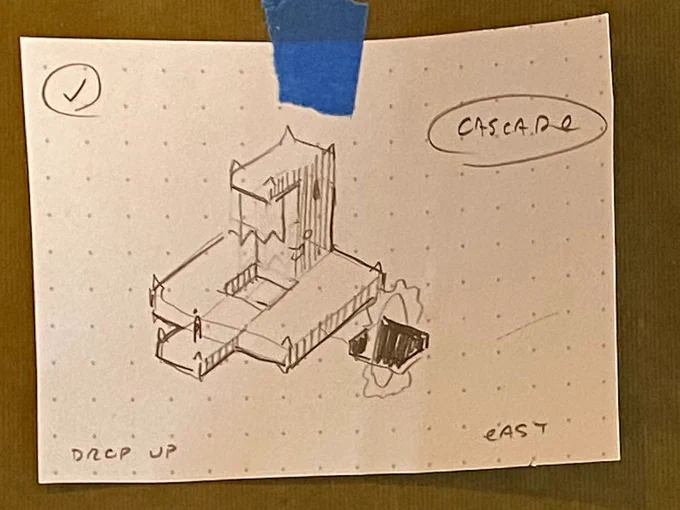 CASCADe
DROP UP
eAST